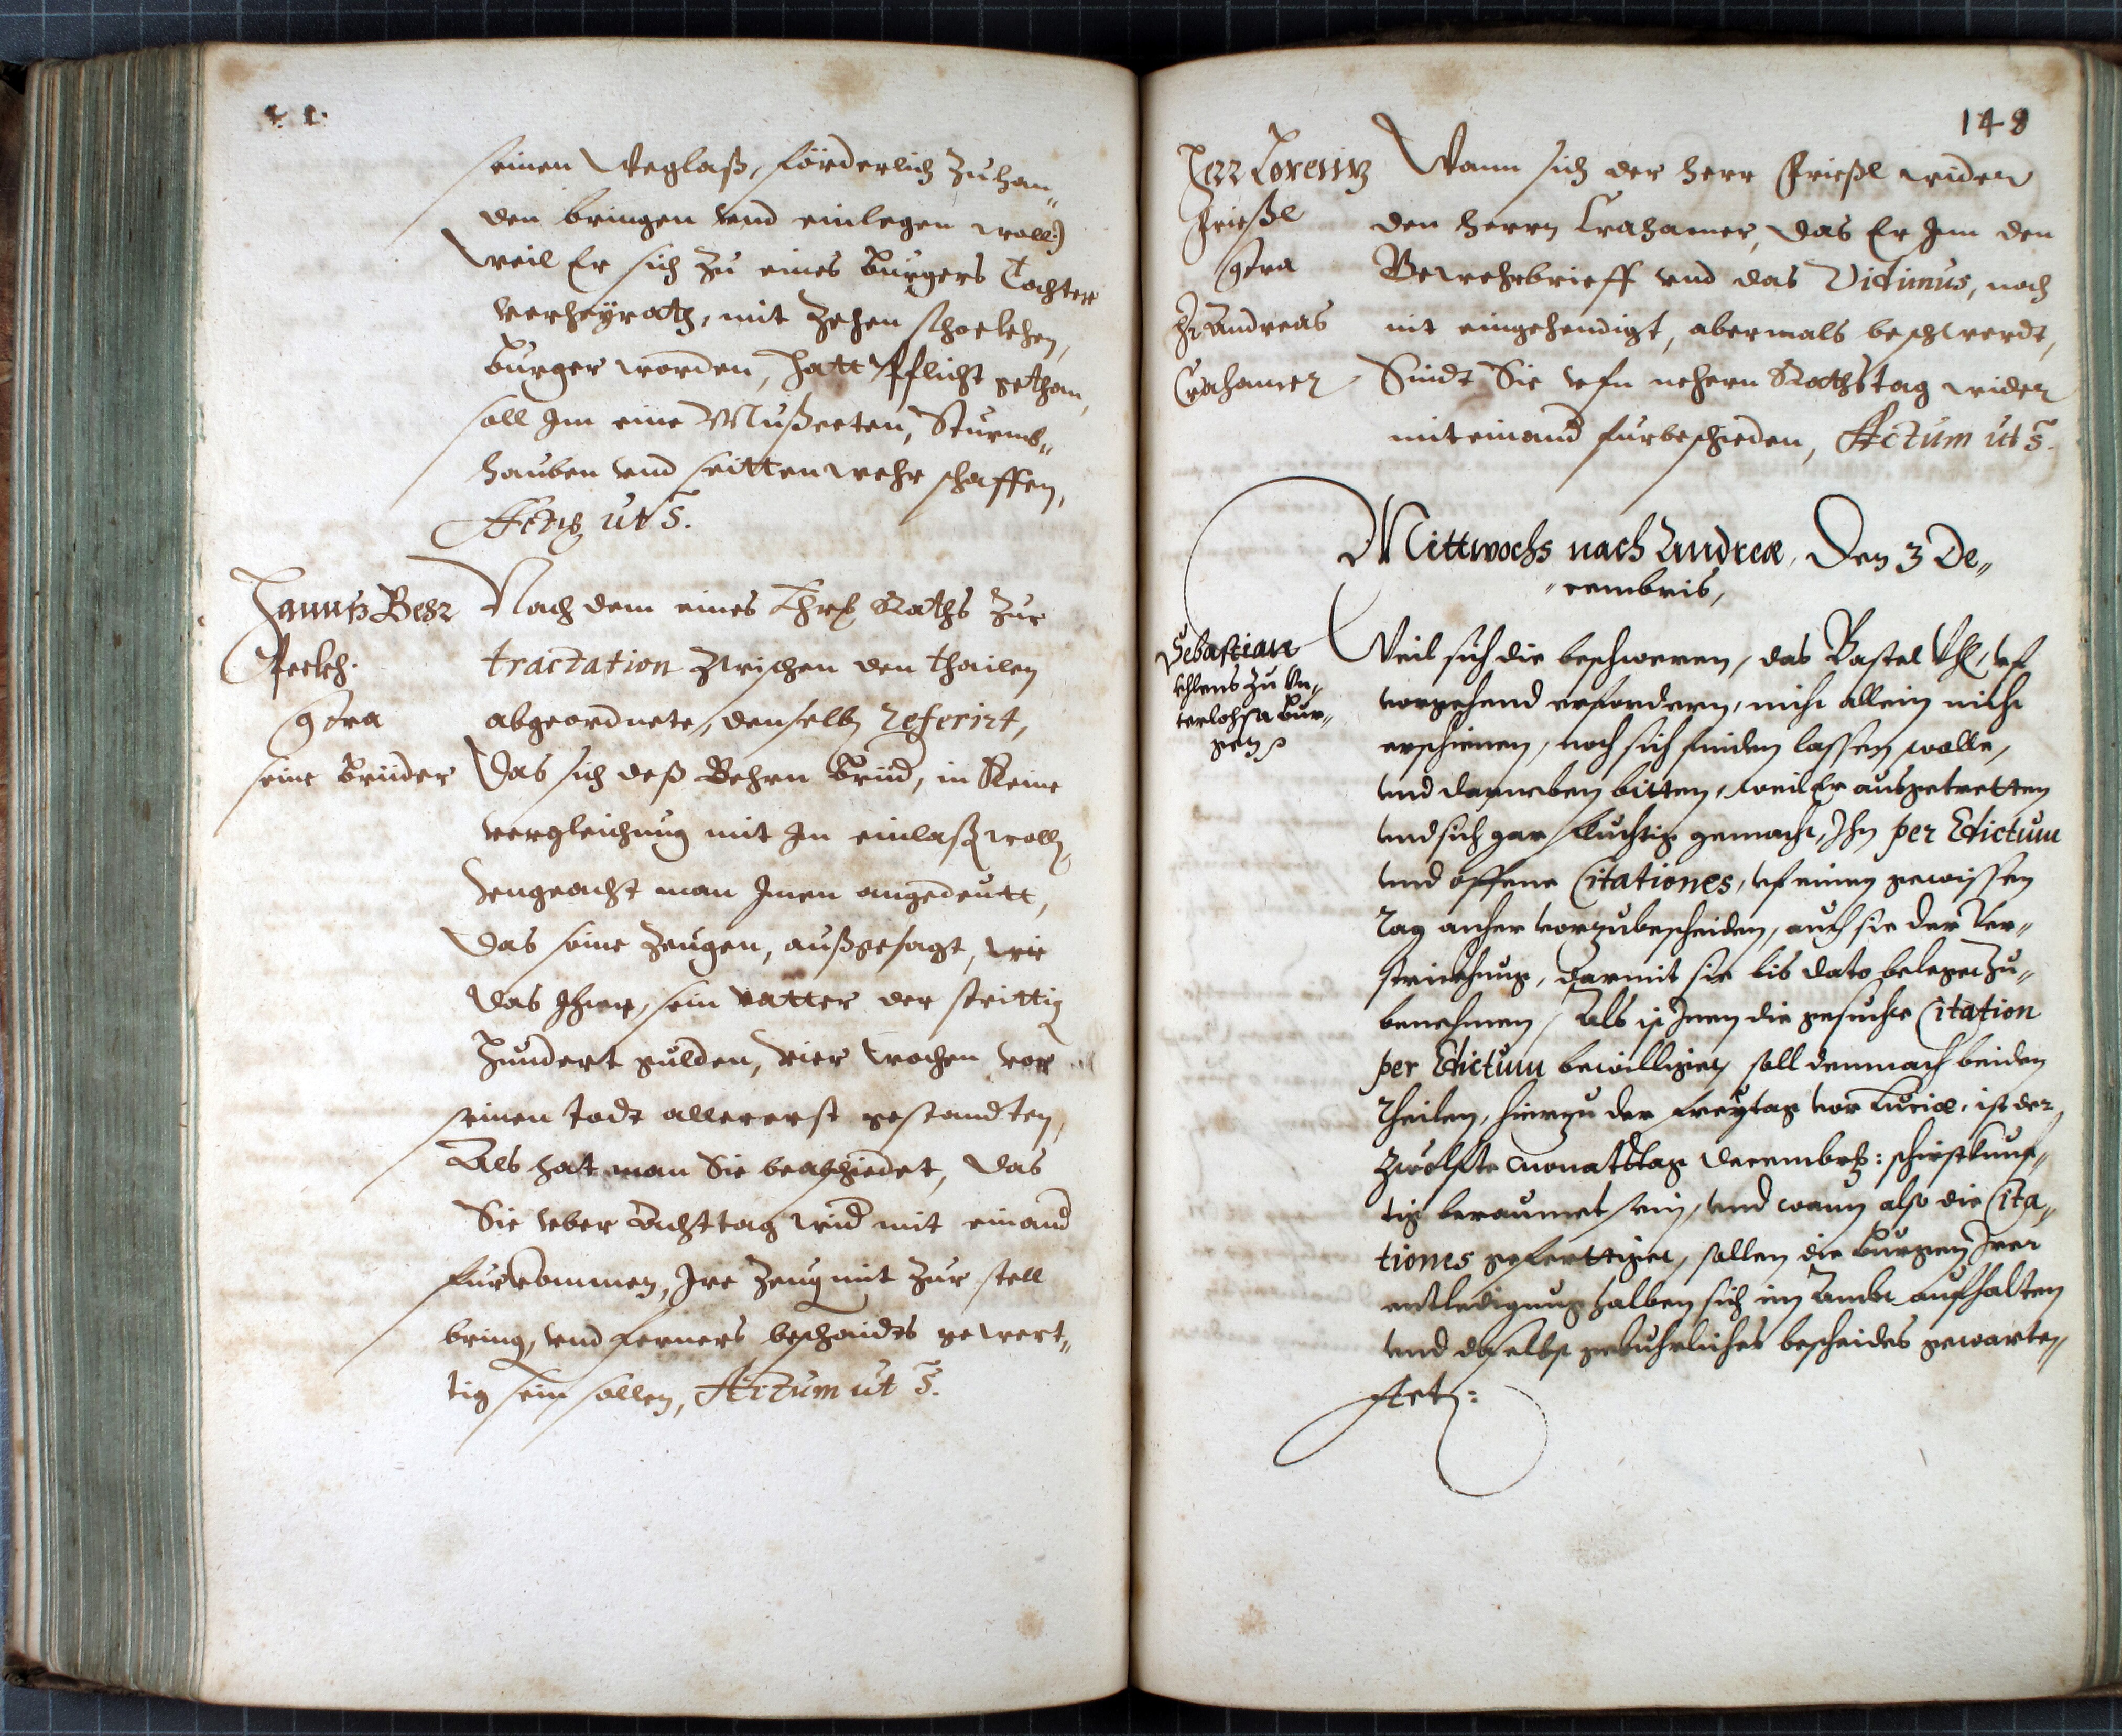 seinen Weglaß, förderlich zuhan„
den bringen vnd einlegen woll:)
Weil Er sich zu eines Burgers Tochter
verheyrath, mit zehen schockchen,
Burger worden, hatt Pflicht gethan,
soll Im eine Mußceten, Sturmb„
hauben vnd seittenwehr schaffen,
Actũ ut s̄.
Hannß Behr
Peckh.
9tra
seine Brüder
Nach dem eines Ehrs Raths zur
tractation zwischen den thailen
abgeordnete, denselbn referirt,
Das sich deß Behrn Brüd, in Keine
vergleichung mit Im einlaßn wolln,
Vngeacht man Inen angedeutt,
Das seine Zeugen, außgesagt, wie
das Ihrer, sein vatter der strittig
Hundert gulden, vier wochen vor
seinen todt allererst gestandten,
Als hat man Sie beabschiedet, das
Sie vber Achttag wid mit einand
furkommen, Ire Zeug mit zur stell
bring, vnd ferners beschaidts gewert„
tig sein sollen, Actum ut s̄.
148
Herr Lorentz
Frießl
9tra
Hr Andreas
Crahamer
Wann sich der Herr Frießl wider
den Herrn Crahamer, das Er Im den
Gewehrbrieff vnd das Vidimus, noch
nit eingehendigt, abermals beschwerdt,
Sindt Sie vfn nehern Rathstag wider
miteinand furbeschieden, Actum ut s̄.
Mittwochs nach Andreæ, Den 3 De„
„cembris,
Sebastian
Vhlens zu Vn„
terlohsa Bur„
gen
Weil sich die beschweren, das Bastel Vhl, vf
vorgehend erfordern, nicht allein nicht
erschienen, noch sich finden lassen wolle,
vnd darneben bitten, weil Er ausgetretten
vnd sich gar fluchtig gemacht, Ihn per Edictum
vnd offene Citationes, vf einen gewissen
Tag anher vorzubescheiden, auch sie der Ver„
strickhung, darmit sie bis dato belegen zu„
benehmen, Als ist Inen die gesuchte Citation
per Edictum bewilliget, soll demnach beiden
Theilen, hierzu der Freytag vor Luciæ, ist der
zwölfte Monattstag Decembris: schirstkunf„
tig beraumet sein, vnd wann also die Cita„
tiones gefertiget, sollen die Burgen Irer
entledigung halben sich im Ambt aufhalten
vnd daselbst gebuhrliches bescheides gewarten,
Act: